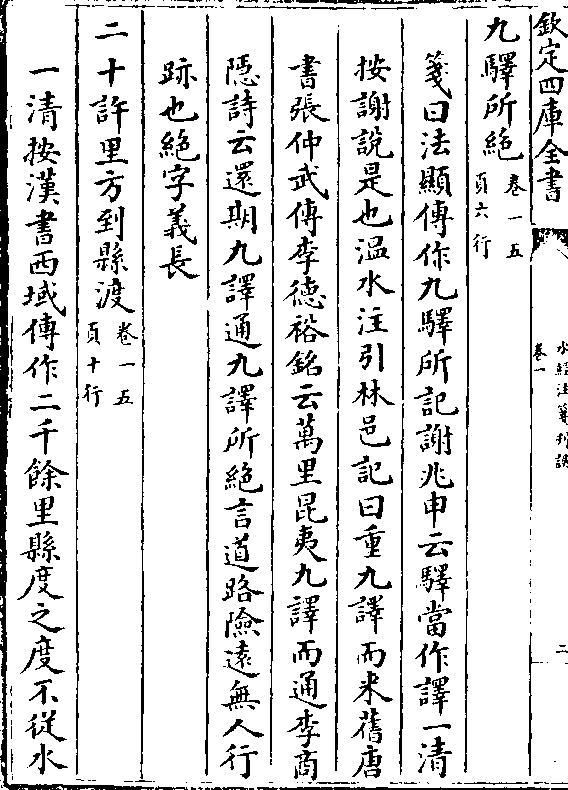 欽定四庫全書
水經注箋刊誤
卷一
二
九驛所絶卷一五頁六行
箋曰法顯傳作九驛所記謝兆申云驛當作譯一清
按謝說是也温水注引林邑記曰重九譯而来舊唐
書張仲武傳李德裕銘云萬里昆夷九譯而通李商
隱詩云還期九譯通九譯所絶言道路險逺無人行
跡也絶字義長
二十許里方到縣渡卷一五頁十行
一清按漢書西域傳作二千餘里縣度之度不從水